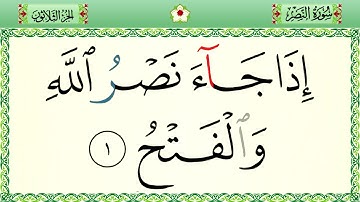 سُورَةُ النَّصْرِ
الجُزْءُ الثَّلَاثُونَ
إِذَا جَآءَ نَصْرُ ٱللَّهِ
وَٱلْفَتْحُ ١